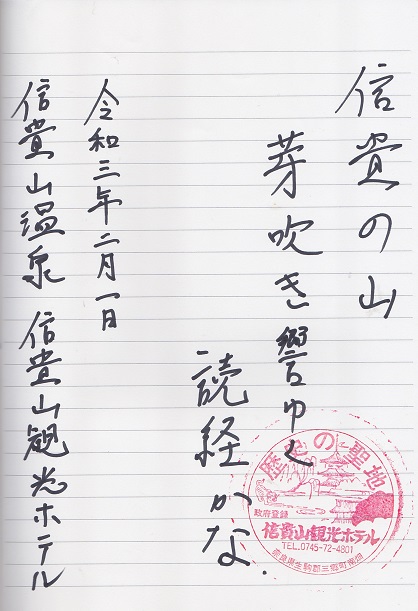 信貴の山
芽吹き響ゆく
読経かな.
令和三年二月一日
信貴山温泉 信貴山観光ホテル
歴史の聖地
政府登録
信貴山観光ホテル
TEL.0745-72-4801
奈良県生駒郡三郷町南畑